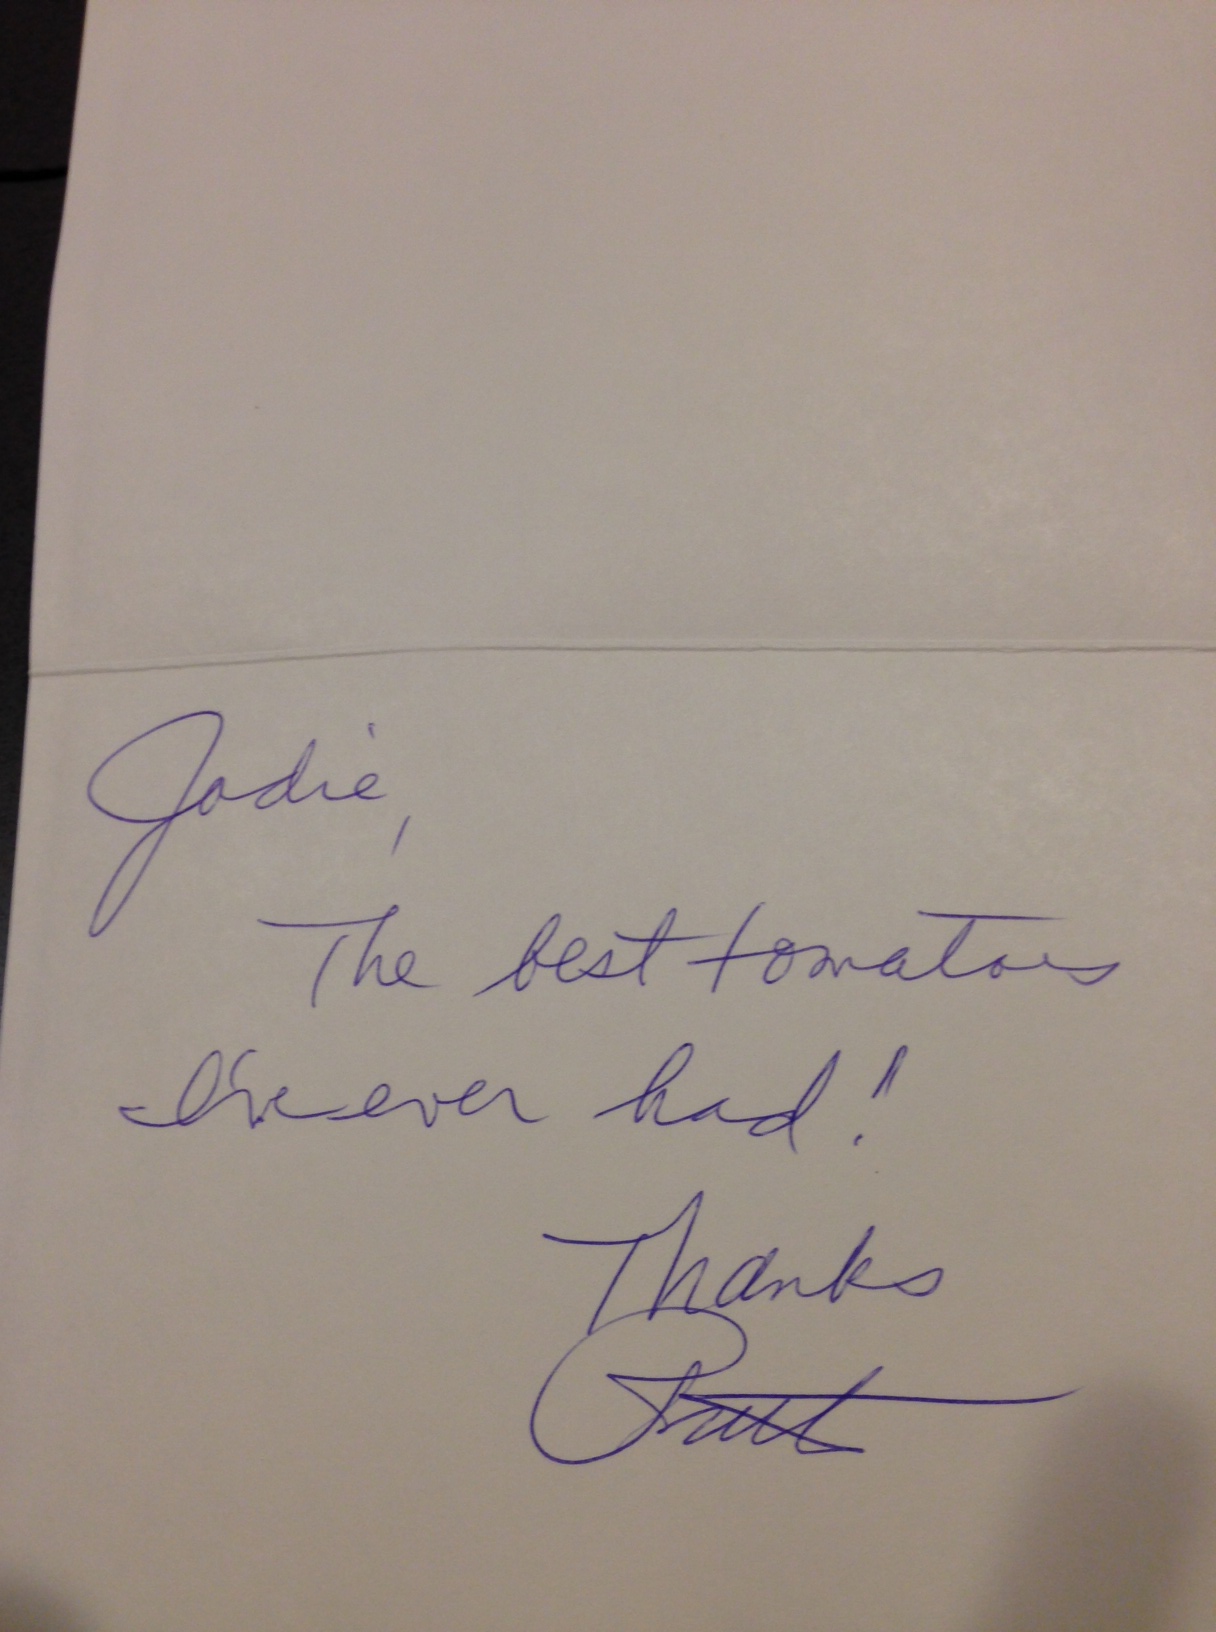 Jodie,
The best tomatoes
I've ever had!
Thanks